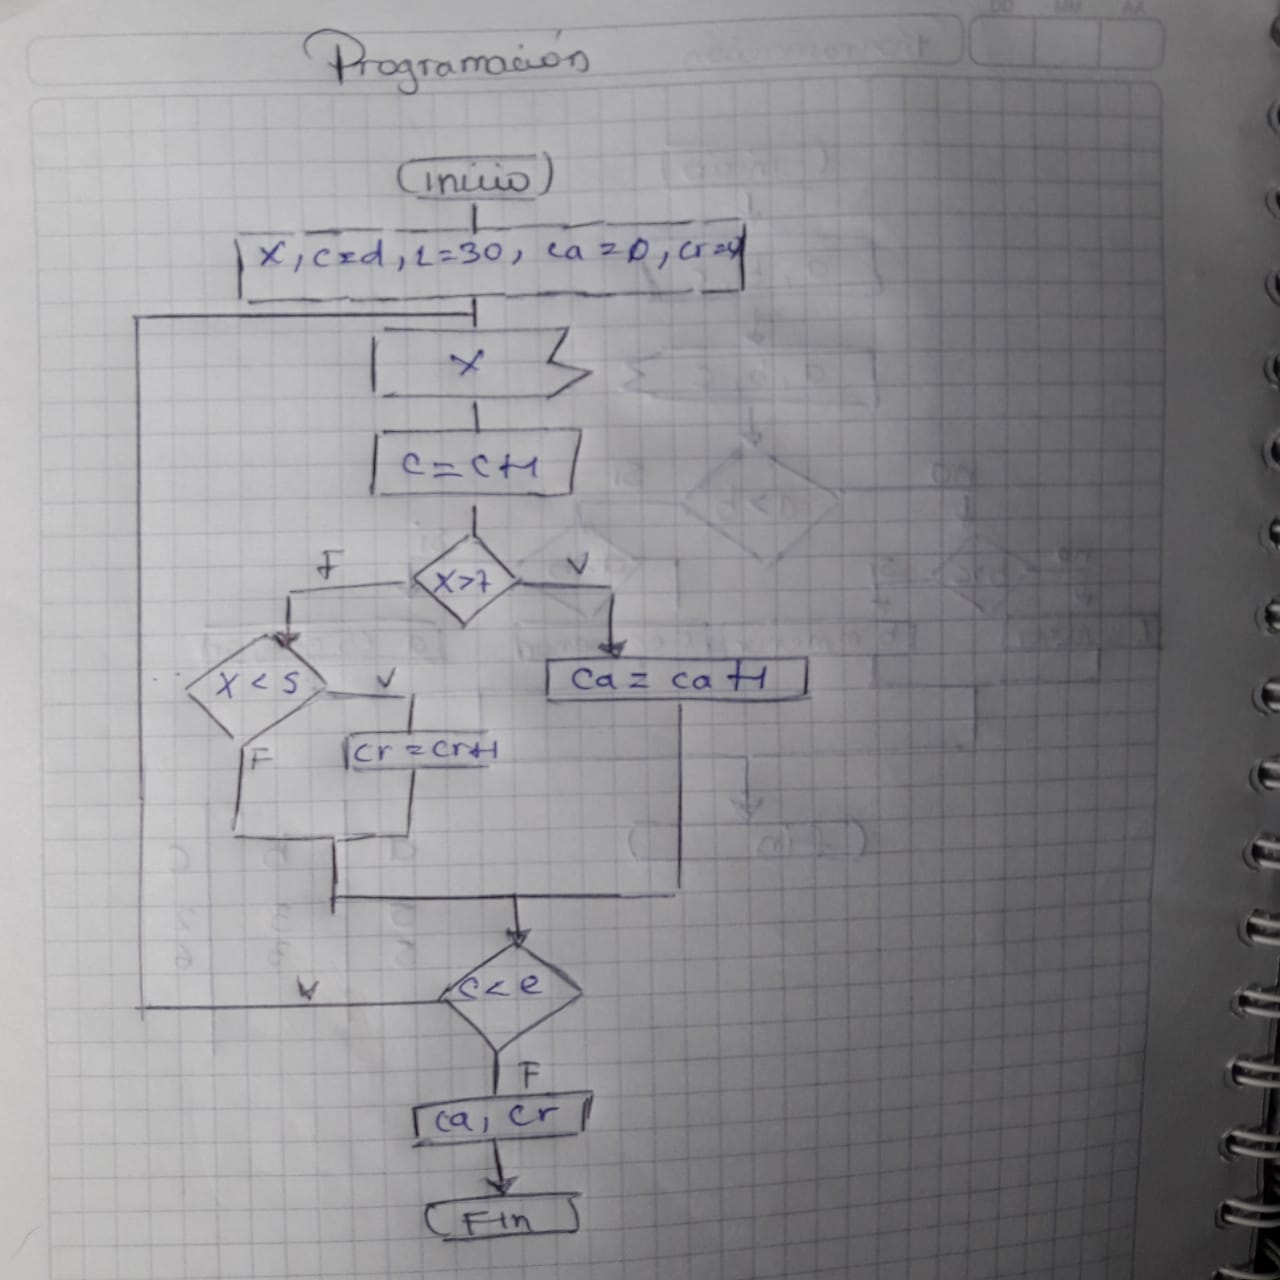 Programación
Inicio
X, c=d, L=30, ca=0, cr=4
X
c=c+1
F
X>7
V
X<5
V
ca=ca+1
F
cr=cr+1
V
c<e
F
ca, cr
Fin